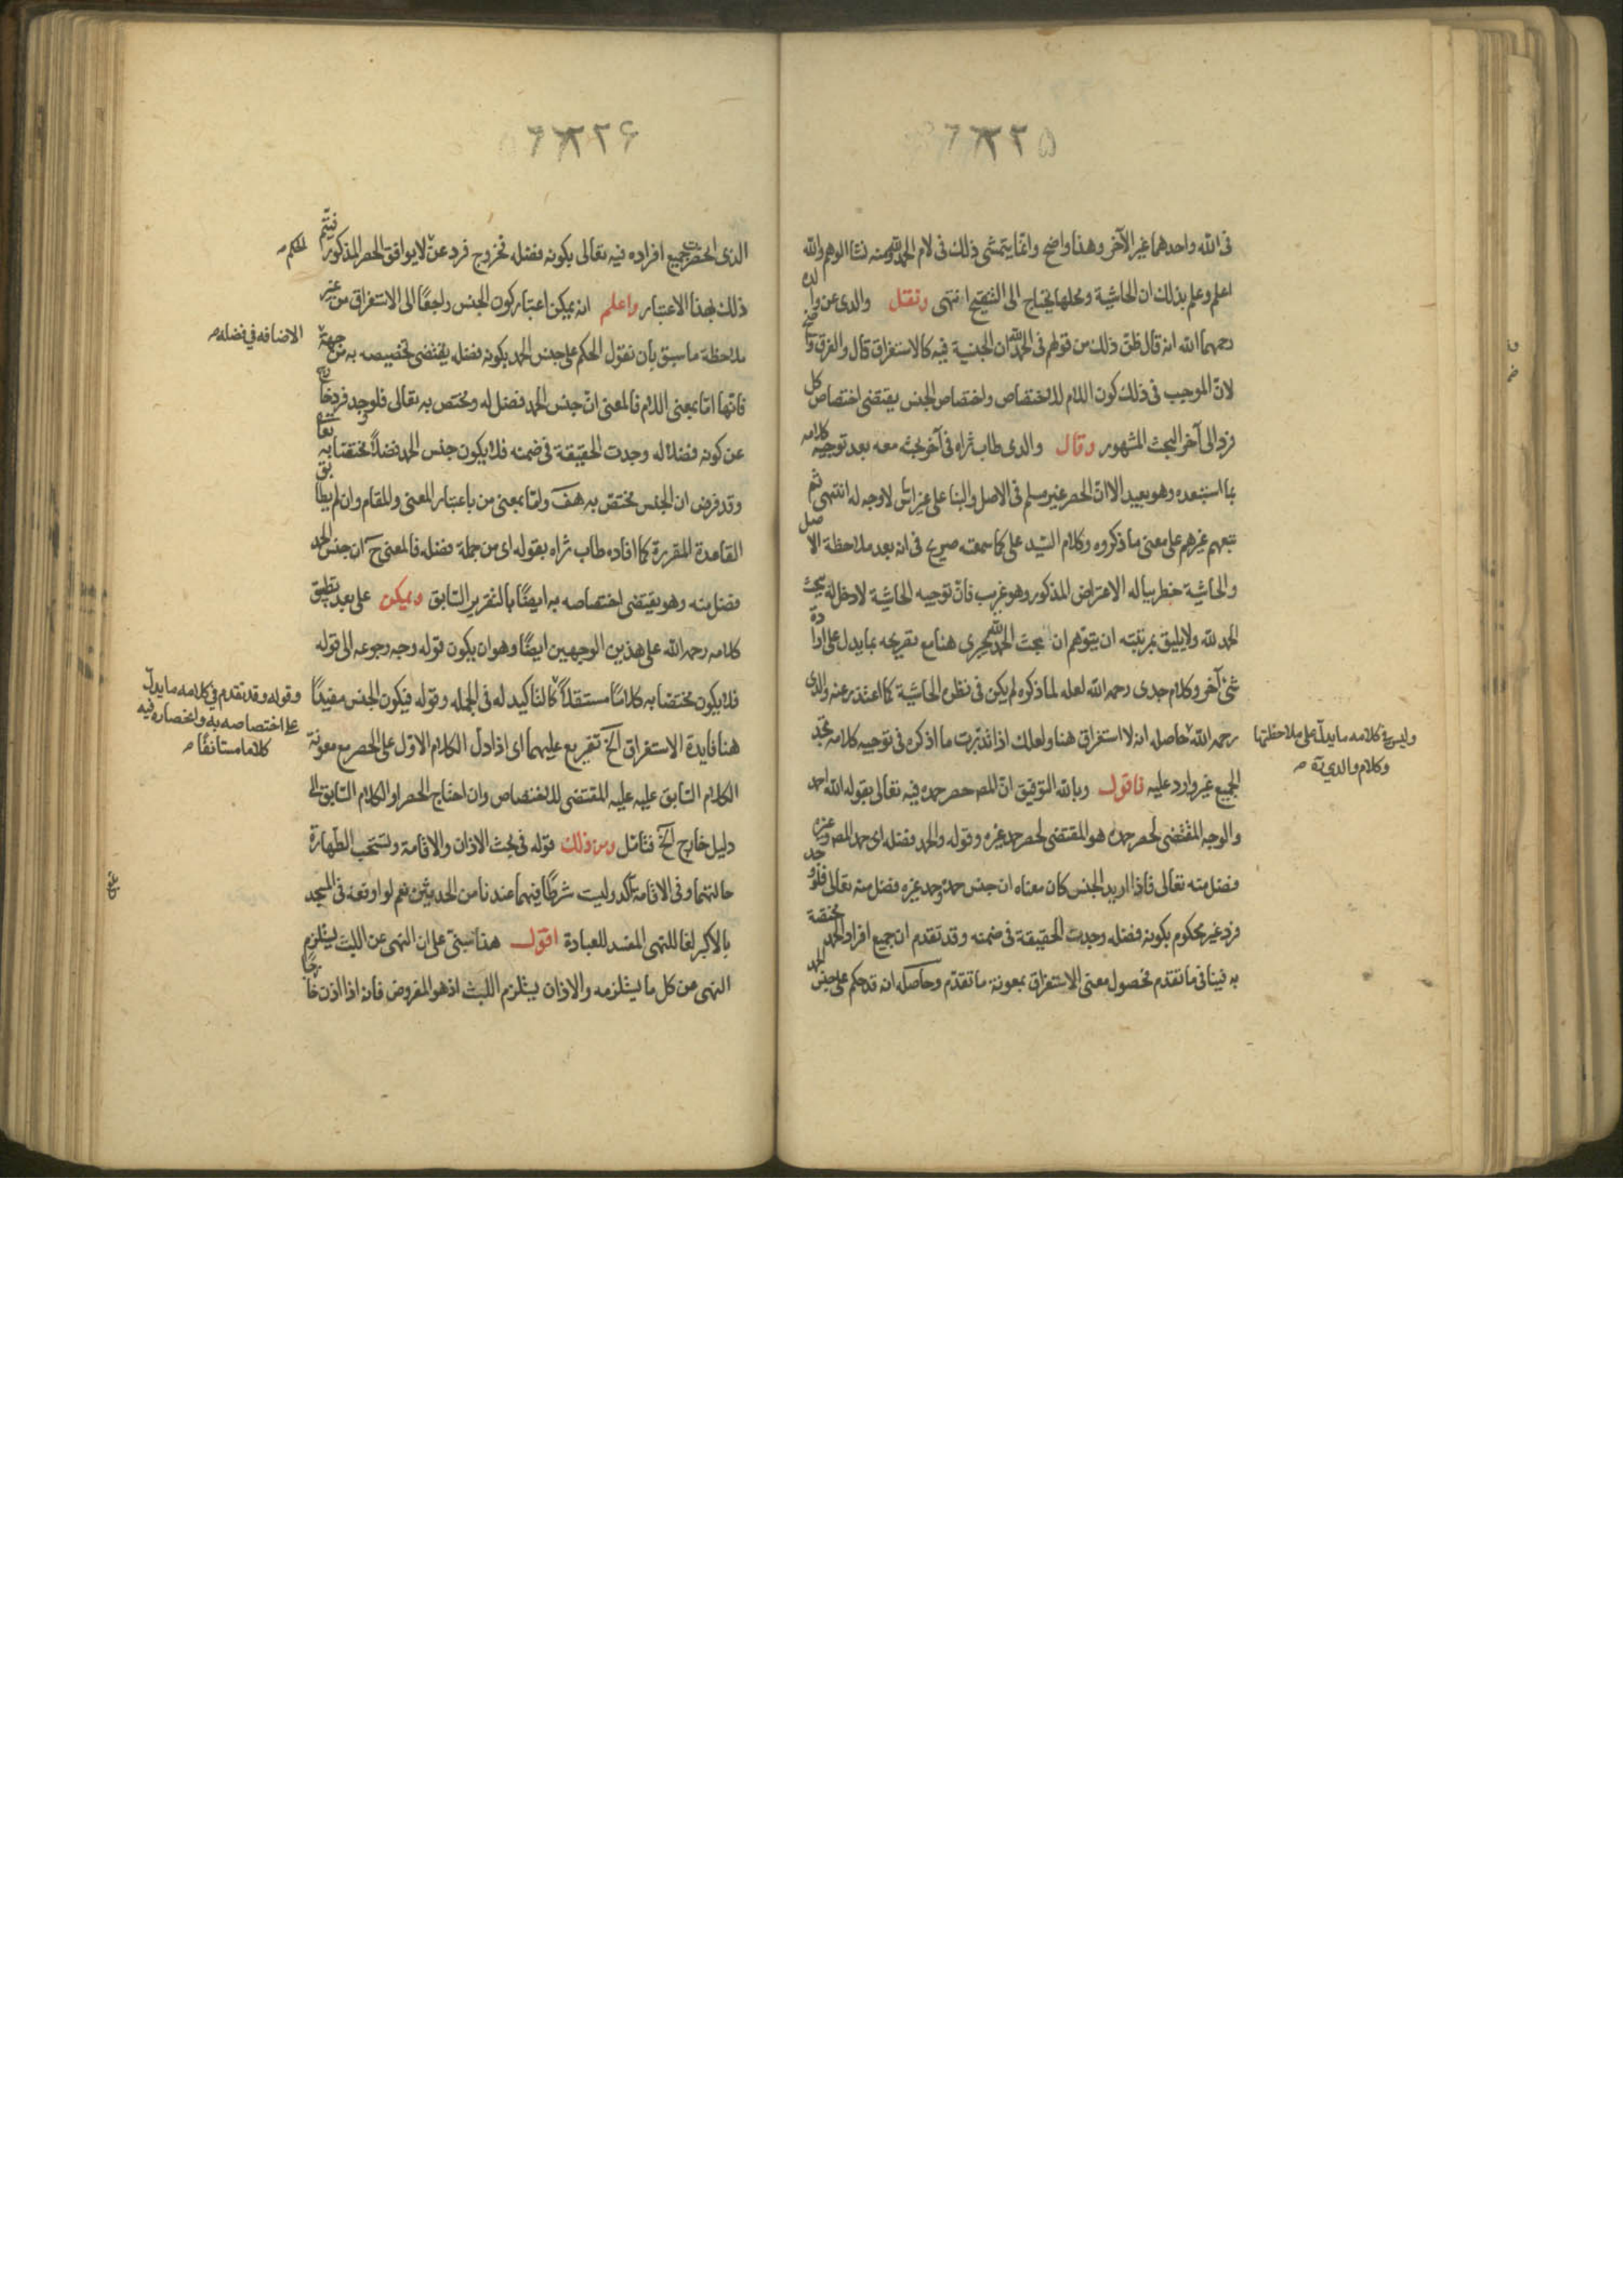 ٢٢٥
فى الله واحدهما غير الآخر وهذا واضح وانما يتمشى ذلك فى لام الحمد لله ومنه نشا الوهم والله
اعلم وعلم بذلك ان الحاشية ومحلها يحتاج الى التنقيح انتهى ونقل والدى عن والده
رحمهما الله انه قال ظن ذلك من قولهم فى الحمد لله ان الجنسية فيه كالاستغراق قال والفرق واضح
لان الموجب فى ذلك كون اللام للاختصاص واختصاص الجنس يقتضى اختصاص كل
فرد الى آخر البحث المشهور وقال والدى طاب ثراه فى آخر بحث معه بعد توجيه كلامه
بما استبعده وهو بعيد الا ان الحصر غير مسلم فى الاصل والبنا على غير اساس لا وجه له انتهى ثم
تبعهم غيرهم على معنى ما ذكروه وكلام السيد على كما سمعته صريح فى انه بعد ملاحظة الاصل
والحاشية خطر بباله الاعتراض المذكور وهو غريب فان توجيه الحاشية لا دخل له ببحث
الحمد لله ولا يليق بمرتبته ان يتوهم ان بحث الحمد لله يجرى هنا مع تقريحه بما يدل على ارادة
شئ آخر وكلام جدى رحمه الله لعله لما ذكره لم يكن فى نظره الحاشية كما اعتذر عنه والدى
رحمه الله حاصله انه لا استغراق هنا ولعلك اذا تدبرت ما اذكره فى توجيه كلامه تجد
وليس فى كلامه ما يدل على ملاحظتها
وكلام والدى ره
الجميع غير وارد عليه فاقول وبالله التوفيق ان المص حصر حمده فيه تعالى بقوله الله احمد
والوجه المقتضى لحصر حمده هو المقتضى لحصر حمد غيره وقوله والحمد فضله اى حمد المص وغيره
فضل منه تعالى فاذا اريد الجنس كان معناه ان جنس حمده وحمد غيره فضل منه تعالى فلو وجد
فرد غير محكوم بكونه فضله وجدت الحقيقة فى ضمنه وقد تقدم ان جميع افراد الحمد مختصة
به فينافى ما تقدم فحصول معنى الاستغراق بمعونة ما تقدم وحاصله انه قد حكم على جنس الحمد
٢٢٦
الذى انحصرت جميع افراده فيه تعالى بكونه فضله فخروج فرد عنه لا يوافق الحصر المذكور فيتم
الحكم
ذلك بهذا الاعتبار واعلم انه يمكن اعتبار كون الجنس راجعًا الى الاستغراق من غير
ملاحظة ما سبق بأن نقول الحكم على جنس الحمد بكونه فضله يقتضى تخصيصه به من جهة
الاضافه فى فضله
فانها اما بمعنى اللام فالمعنى ان جنس الحمد فضل له ومختص به تعالى فلو وجد فرد خارج
عن كونه فضلا له وجدت الحقيقة فى ضمنه فلا يكون جنس الحمد فضلًا مختصا به تعالى
وقد فرض ان الجنس مختص به هف واما بمعنى من باعتبار المعنى والمقام وان لم يطابق
القاعدة المقررة كما افاده طاب ثراه بقوله اى من جملة فضله فالمعنى ح ان جنس الحمد
فضل منه وهو يقتضى اختصاصه به ايضًا بالتقرير السابق ويمكن على بعد تطبيق
كلامه رحمه الله على هذين الوجهين ايضًا وهو ان يكون قوله وجه رجوعه الى قوله
فلا يكون مختصا به كلامًا مستقلًا كالتاكيد له فى الجمله وقوله فيكون الجنس مفيدًا
وقوله وقد تقدم فى كلامه ما يدل
على اختصاصه به وانحصاره فيه
كلاما مستانفًا
هنا فايدة الاستغراق الخ تفريع عليهما اى اذا دل الكلام الاول على الحصر مع معونة
الكلام السابق عليه المقتضى للاختصاص وان احتاج الحصر او الكلام السابق الى
دليل خارج الخ فتامل ومن ذلك قوله فى بحث الاذان والاقامة وتستحب الطهارة
حالتهما وفى الاقامة آكد وليست شرطًا فيهما عندنا من الحدثين نعم لو اوقعه فى المسجد
بالاكبر لغا للنهى المفسد للعبادة اقول هذا مبنى على ان النهى عن اللبث يستلزم
النهى عن كل ما يستلزمه والاذان يستلزم اللبث اذ هو المفروض فانه اذا اذن خارجًا